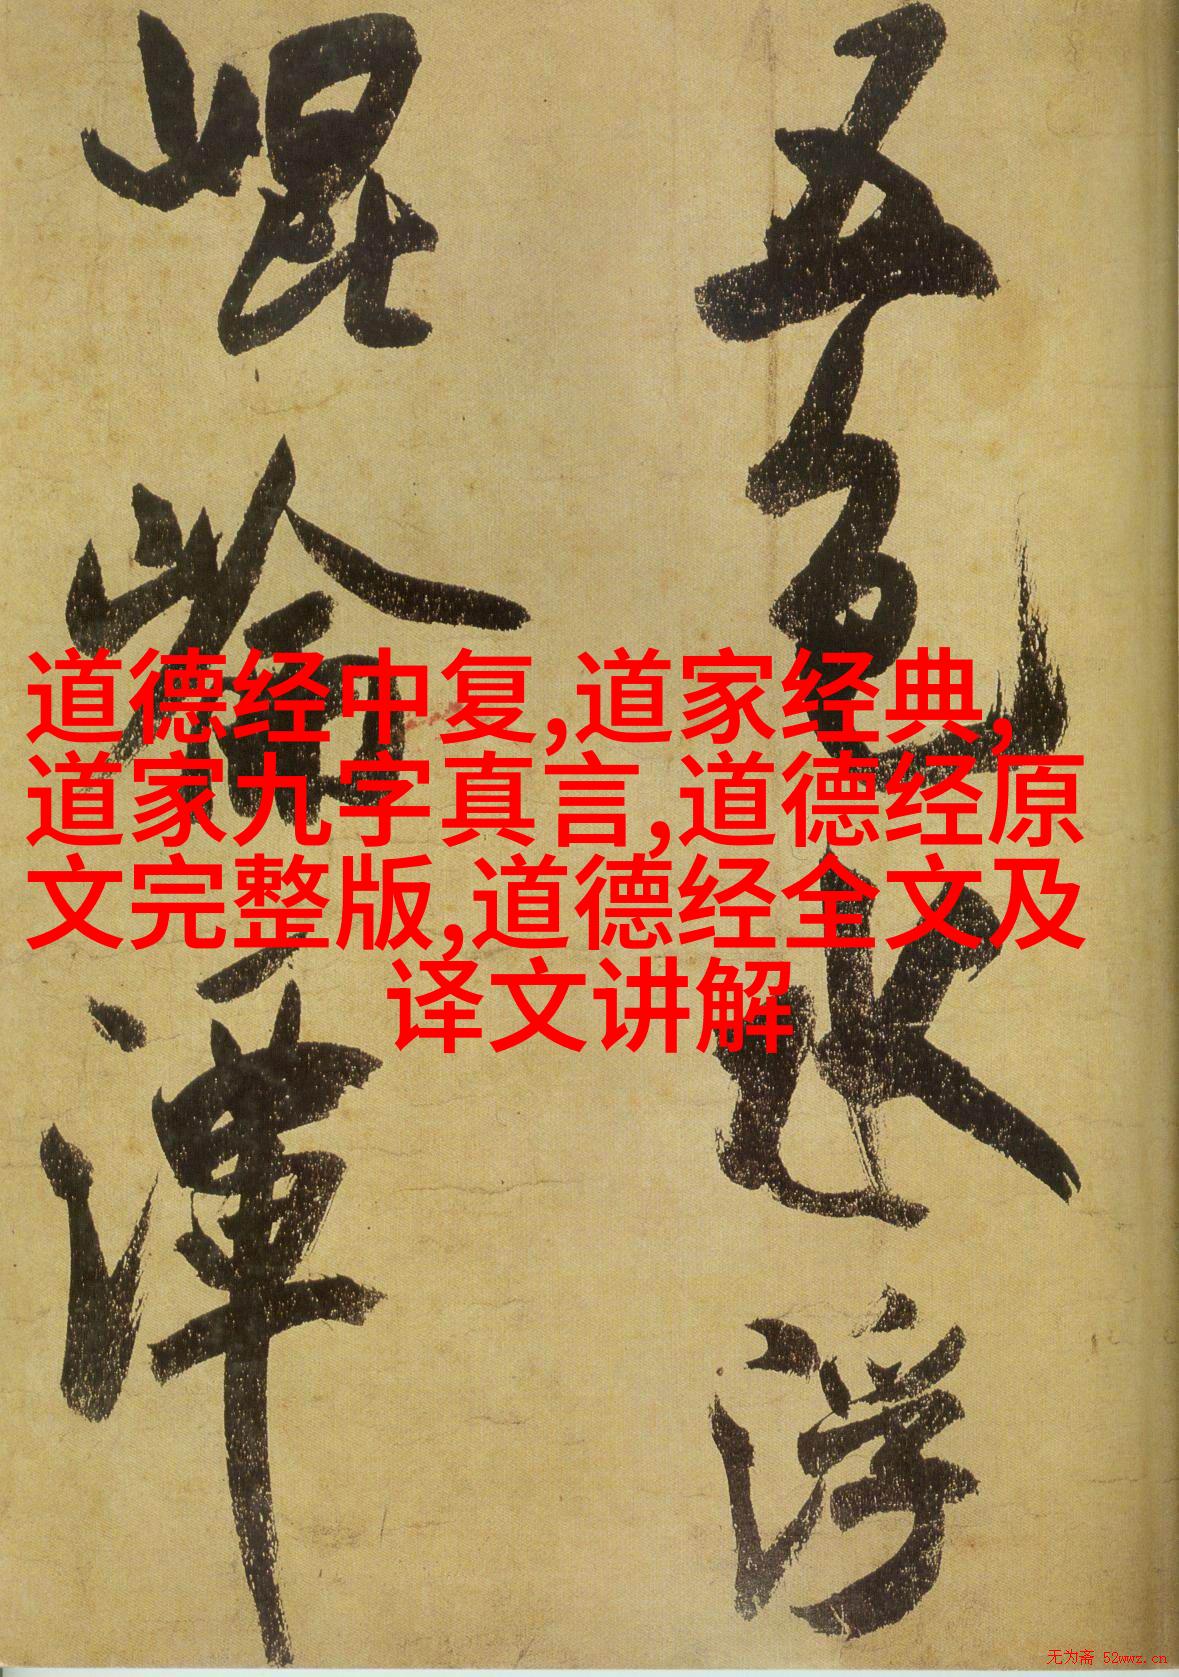 五色水浮
崐崘潭
道德经中复,道家经典,
道家九字真言,道德经原
文完整版,道德经全文及
译文讲解
无为斋 52wwz.cn